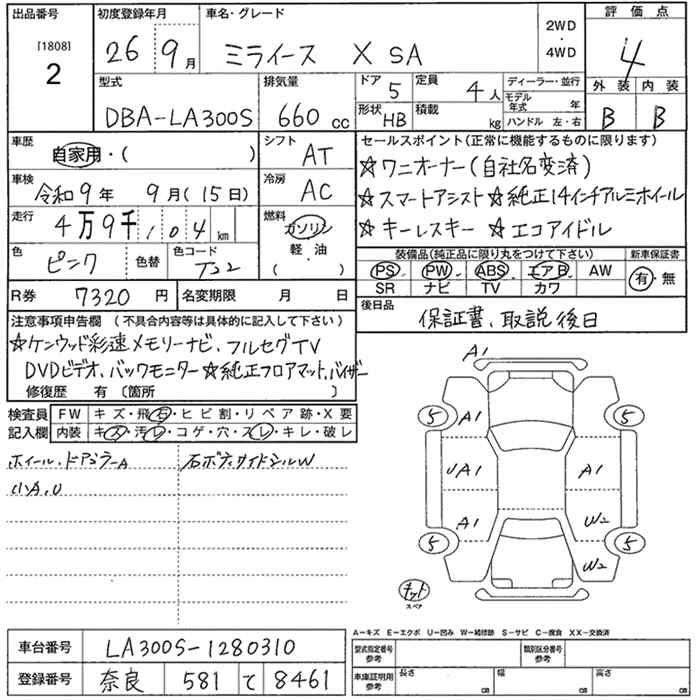 出品番号 初度登録年月 車名・グレード 2WD・4WD 評価点
[1808] 2 26年 9月 ミライース X SA 4
型式 排気量 ドア 5 定員 4人 ディーラー・並行 外装 内装
DBA-LA300S 660cc 形状 HB 積載 kg モデル年式 年 B B
ハンドル 左・右
車歴 シフト セールスポイント(正常に機能するものに限ります)
自家用・( ) AT ☆ワニオーナー(自社名変済)
車検 冷房 ☆スマートアシスト ☆純正14インチアルミホイール
令和9年 9月(15日) AC ☆キーレスキー ☆エコアイドル
走行 燃料
4万9千104km ガソリン・軽・油・( )
色 ピンク 色替 色コード T32
装備品(純正品に限り丸をつけて下さい) 新車保証書
PS PW ABS エアB AW 有・無
SR ナビ TV カワ
R券 7320円 名変期限 月 日
後日品 保証書、取説後日
注意事項申告欄(不具合内容等は具体的に記入して下さい)
☆ケンウッド彩速メモリーナビ、フルセグTV
DVDビデオ、バックモニター☆純正フロアマット、バイザー
修復歴 有〔箇所 〕
検査員記入欄 FW キズ・飛石・ヒビ割・リペア跡・X要
内装 キズ・汚レ・コゲ・穴・スレ・キレ・破レ
ホイール、ドアミラーA 右ボディサイドシルW
小A,U
A1
5 A1 5
UA1 A1
A1 W2
5 W2 5
キット
スペア
A-キズ E-エクボ U-凹み W-補修跡 S-サビ C-腐食 XX-交換済
車台番号 LA300S-1280310 型式指定番号 参考 類別区分番号 参考
登録番号 奈良 581 て 8461 車庫証明用 参考 長さ cm 幅 cm 高さ cm